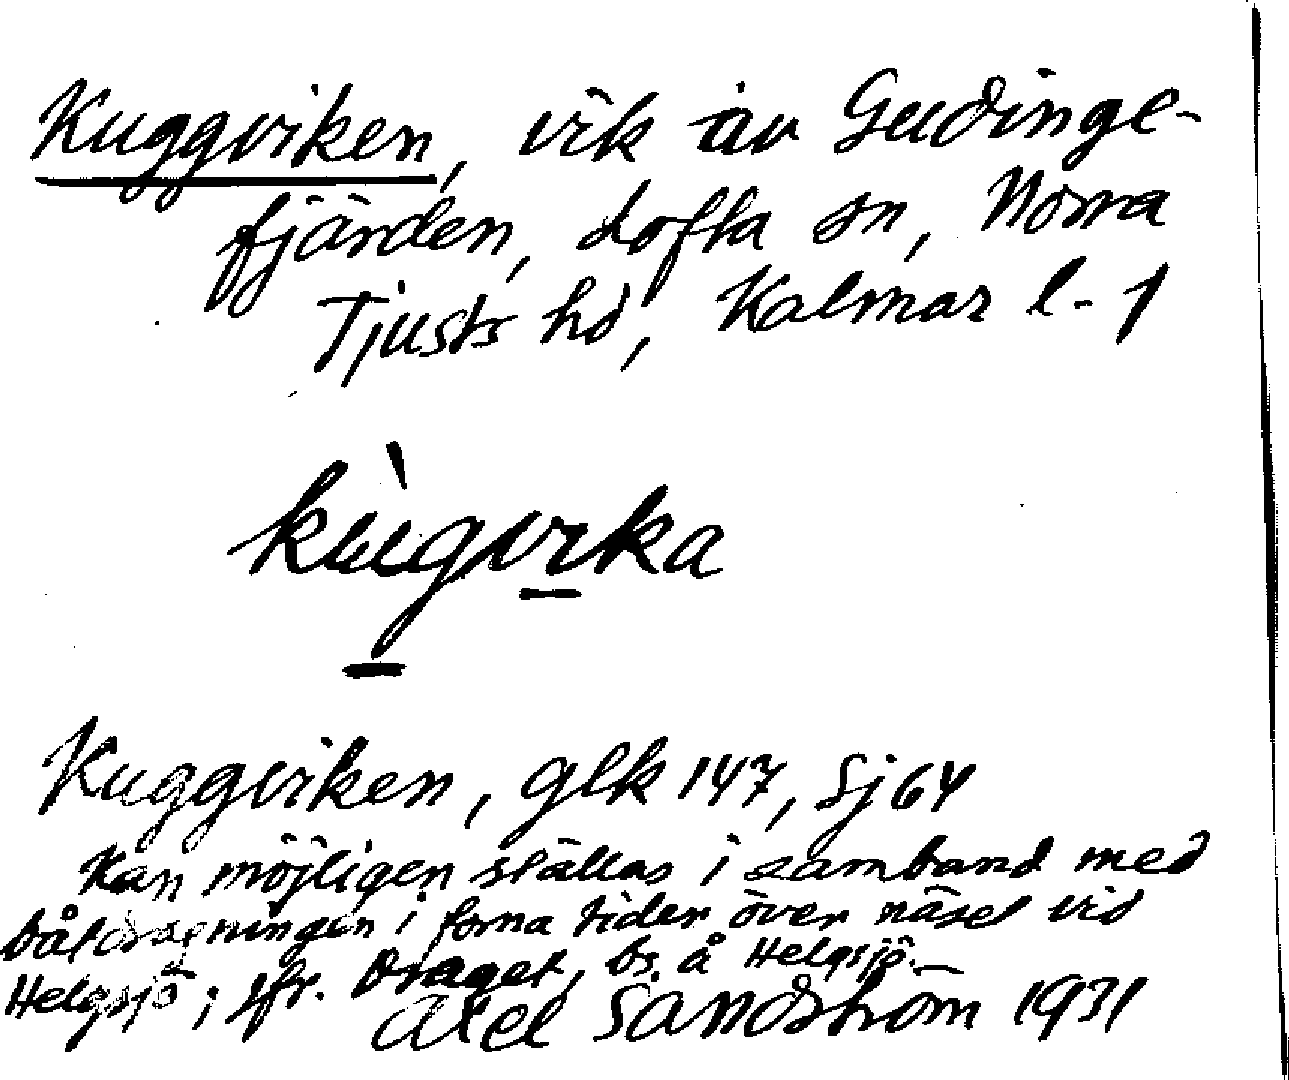 Kuggviken, vik av Gudinge-
fjärden, Lofta sn, Norra
Tjusts hd, Kalmar l-
kùgvika
Kuggviken, glk 147, Sj 64
Kan möjligen ställas i samband med
båtdragningen i forna tider över näset vid
Helgsjö; jfr. Draget, bs. å Helgsjö.
Axel Sandström 1931